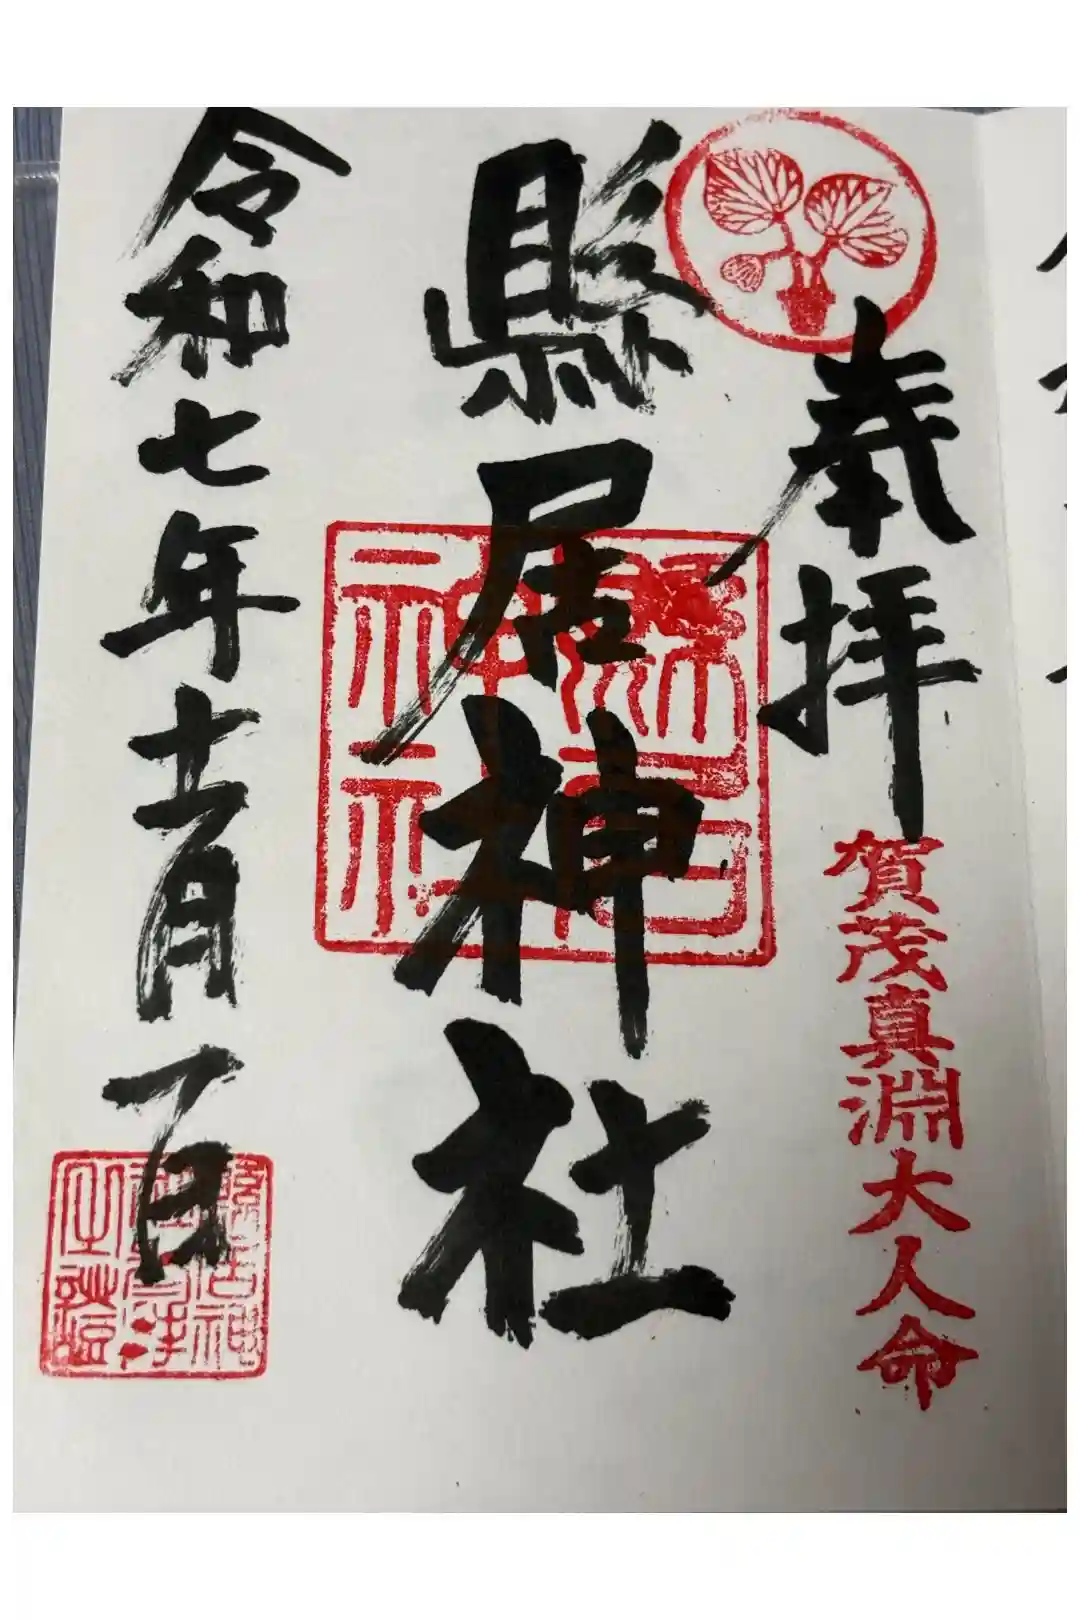 奉拝
賀茂真淵大人命
縣居神社
縣居神社
令和七年十二月一日